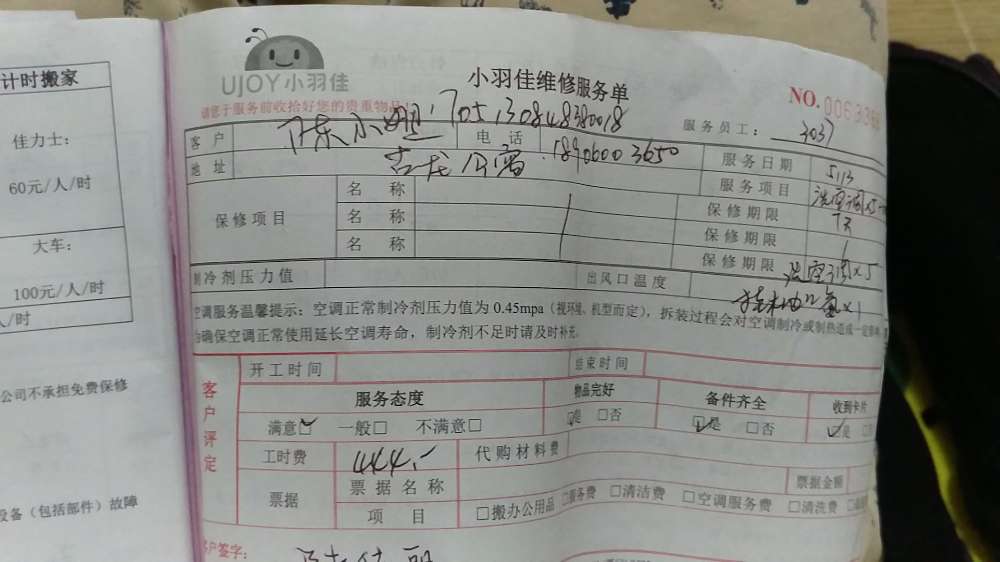 计时搬家
佳力士：
60元/人/时
大车：
100元/人/时
人/时
公司不承担免费保修
设备（包括部件）故障
UJOY小羽佳
小羽佳维修服务单
请您于服务前收拾好您的贵重物品
NO.
服务员工： 3037
客户 陈小姐 电话 18906003650
地址 吉龙公寓
服务日期 5113
服务项目 洗空调×5
保修项目
名称 保修期限
名称 保修期限
名称 保修期限
洗空调×5
制冷剂压力值 出风口温度
空调服务温馨提示：空调正常制冷剂压力值为 0.45mpa（视环境、机型而定），拆装过程会对空调制冷或制热造成一定
为确保空调正常使用延长空调寿命，制冷剂不足时请及时补充.
客户评定
开工时间 结束时间
服务态度 物品完好 备件齐全 收到卡片
满意□ 一般□ 不满意□ □是 □否 □是 □否 □是
工时费 444.- 代购材料费
票据 票据名称 票据金额
项目 □搬办公用品 □服务费 □清洁费 □空调服务费 □清洗费
客户签字：